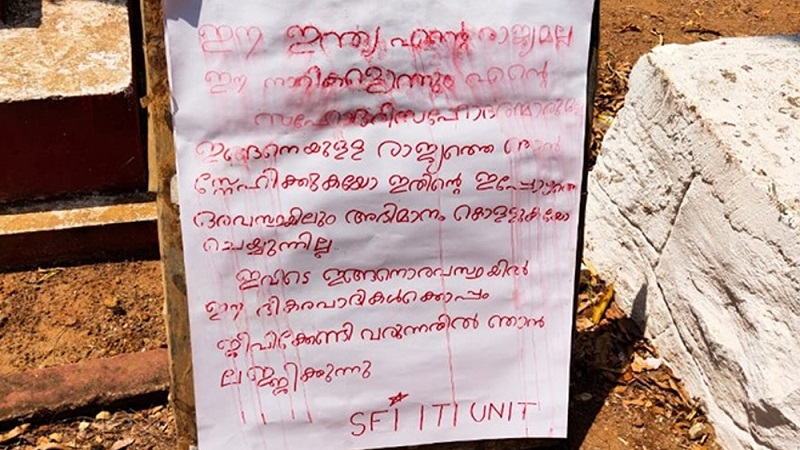 ഈ ഇന്ത്യ എന്റെ രാജ്യമല്ല
ഈ നാറികളൊന്നും എന്റെ
സഹോദരീസഹോദരന്മാരുമല്ല
ഇങ്ങനെയുള്ള രാജ്യത്തെ ഞാൻ
സ്നേഹിക്കുകയോ ഇതിന്റെ ഇപ്പോഴത്തെ
ദുരവസ്ഥയിലും അഭിമാനം കൊള്ളുകയോ
ചെയ്യുന്നില്ല
ഇവിടെ ഇങ്ങനൊരവസ്ഥയിൽ
ഈ ഭീകരവാദികൾക്കൊപ്പം
ജീവിക്കേണ്ടി വരുന്നതിൽ ഞാൻ
ലജ്ജിക്കുന്നു
SFI ITI UNIT